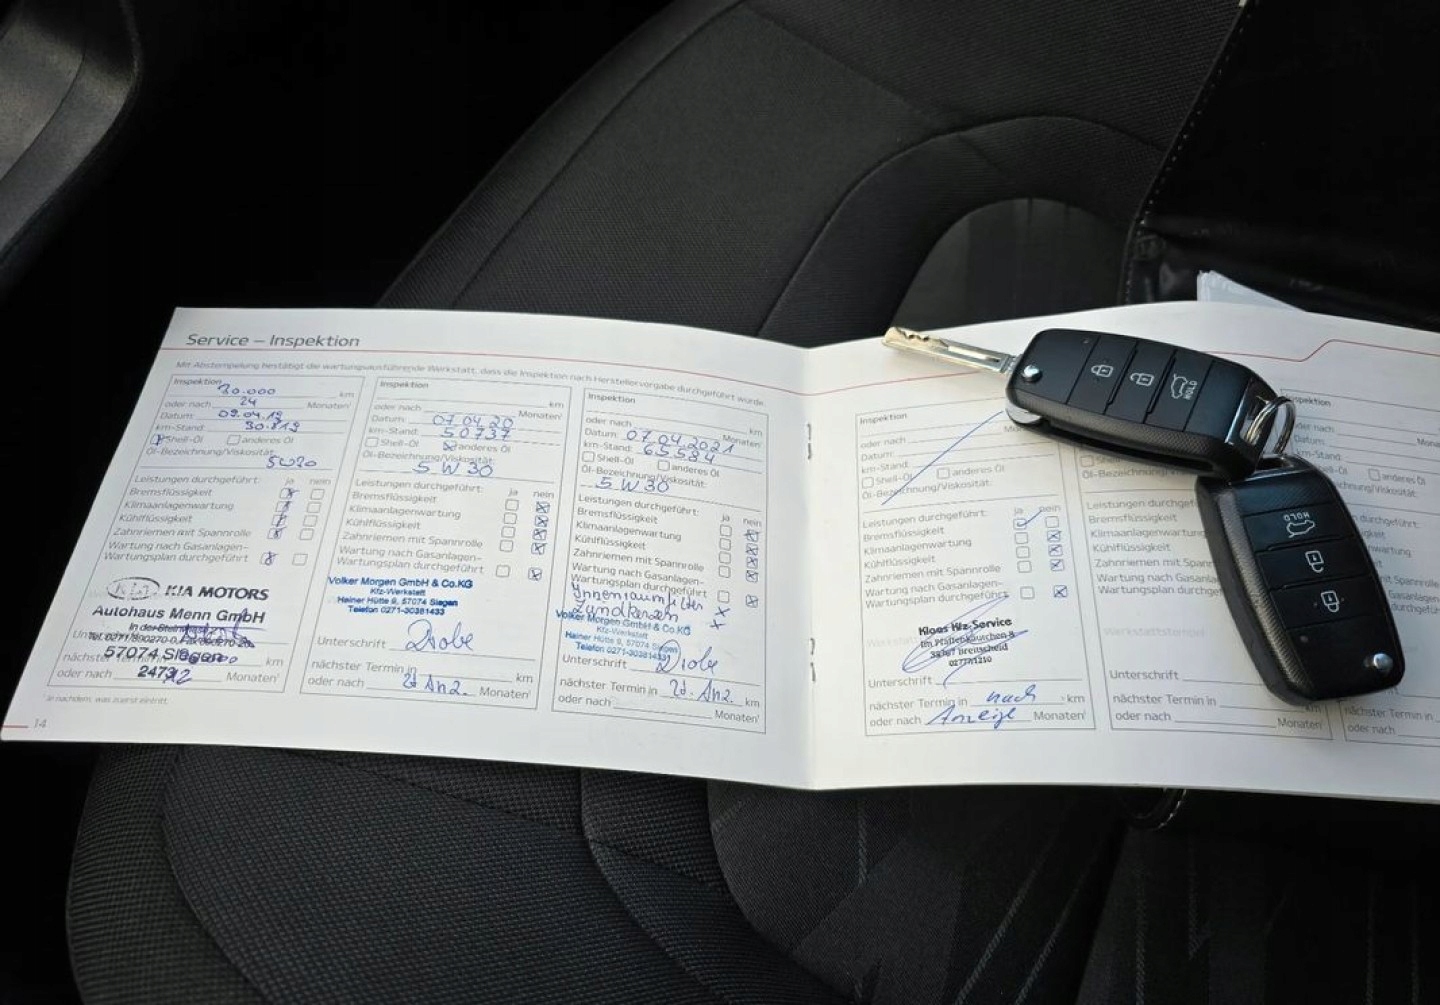 Service – Inspektion
Mit Abstempelung bestätigt die wartungsausführende Werkstatt, dass die Inspektion nach Herstellervorgabe durchgeführt wurde.
Inspektion
30.000 km
oder nach 24 Monaten¹
Datum: 09.04.19
km-Stand: 30.819
Shell-Öl anderes Öl
Öl-Bezeichnung/Viskosität:
5W30
Leistungen durchgeführt: ja nein
Bremsflüssigkeit
Klimaanlagenwartung
Kühlflüssigkeit
Zahnriemen mit Spannrolle
Wartung nach Gasanlagen-
Wartungsplan durchgeführt
KIA MOTORS
Autohaus Menn GmbH
57074 Siegen
nächster Termin in km
oder nach Monaten¹
¹Je nachdem, was zuerst eintritt.
14
Inspektion
km
oder nach Monaten¹
Datum: 07.04.20
km-Stand: 50737
Shell-Öl anderes Öl
Öl-Bezeichnung/Viskosität:
5W30
Leistungen durchgeführt: ja nein
Bremsflüssigkeit
Klimaanlagenwartung
Kühlflüssigkeit
Zahnriemen mit Spannrolle
Wartung nach Gasanlagen-
Wartungsplan durchgeführt
Volker Morgen GmbH & Co.KG
Kfz-Werkstatt
Hainer Hütte 9, 57074 Siegen
Telefon 0271-30381433
Unterschrift
nächster Termin in km
oder nach Monaten¹
Inspektion
km
oder nach Monaten¹
Datum: 07.04.2021
km-Stand: 65584
Shell-Öl anderes Öl
Öl-Bezeichnung/Viskosität:
5W30
Leistungen durchgeführt: ja nein
Bremsflüssigkeit
Klimaanlagenwartung
Kühlflüssigkeit
Zahnriemen mit Spannrolle
Wartung nach Gasanlagen-
Wartungsplan durchgeführt
Innenraumfilter x
Zündkerzen x
Volker Morgen GmbH & Co.KG
Kfz-Werkstatt
Hainer Hütte 9, 57074 Siegen
Telefon 0271-30381433
Unterschrift
nächster Termin in km
oder nach Monaten¹
Inspektion
oder nach
Datum:
km-Stand:
Shell-Öl anderes Öl
Öl-Bezeichnung/Viskosität:
Leistungen durchgeführt: ja nein
Bremsflüssigkeit
Klimaanlagenwartung
Kühlflüssigkeit
Zahnriemen mit Spannrolle
Wartung nach Gasanlagen-
Wartungsplan durchgeführt
Klaas Kfz-Service
Breitscheid
Unterschrift
nächster Termin in nach km
oder nach Anzeige Monaten¹
Leistungen durchgeführt:
Bremsflüssigkeit
Klimaanlagenwartung
Kühlflüssigkeit
Zahnriemen mit Spannrolle
Wartung nach
Wartungsplan
Werkstattstempel
Unterschrift
nächster Termin in km
oder nach Monaten¹
nächster Termin in
oder nach
HOLD
HOLD